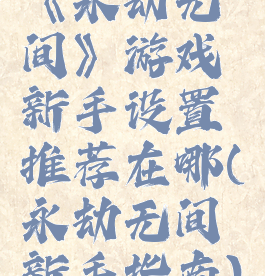 《永劫无
间》游戏
新手设置
推荐在哪(
永劫无间
新手指南)